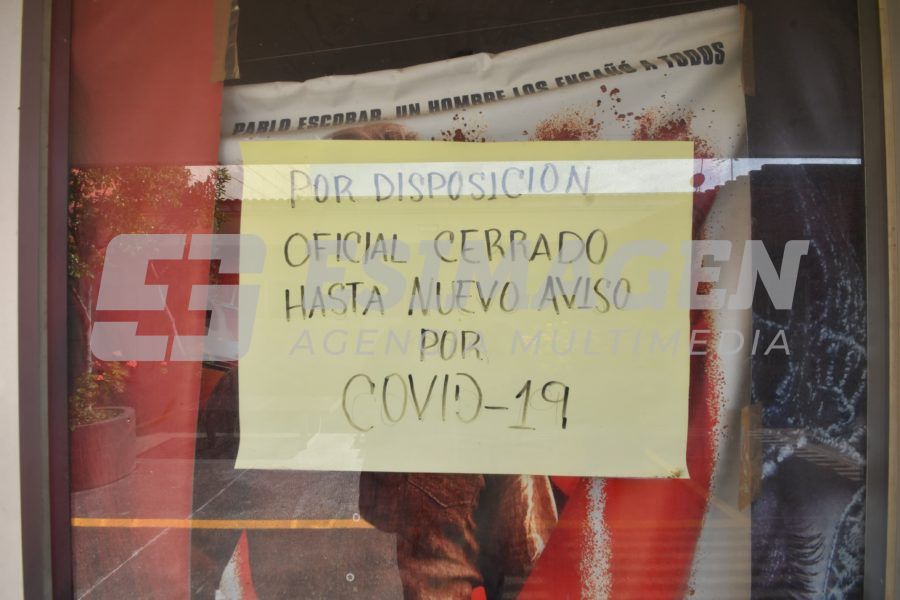 PABLO ESCOBAR, UN HOMBRE LOS ENGAÑÓ A TODOS
POR DISPOSICION
OFICIAL CERRADO
HASTA NUEVO AVISO
POR
COVID-19
ESIMAGEN
AGENCIA MULTIMEDIA